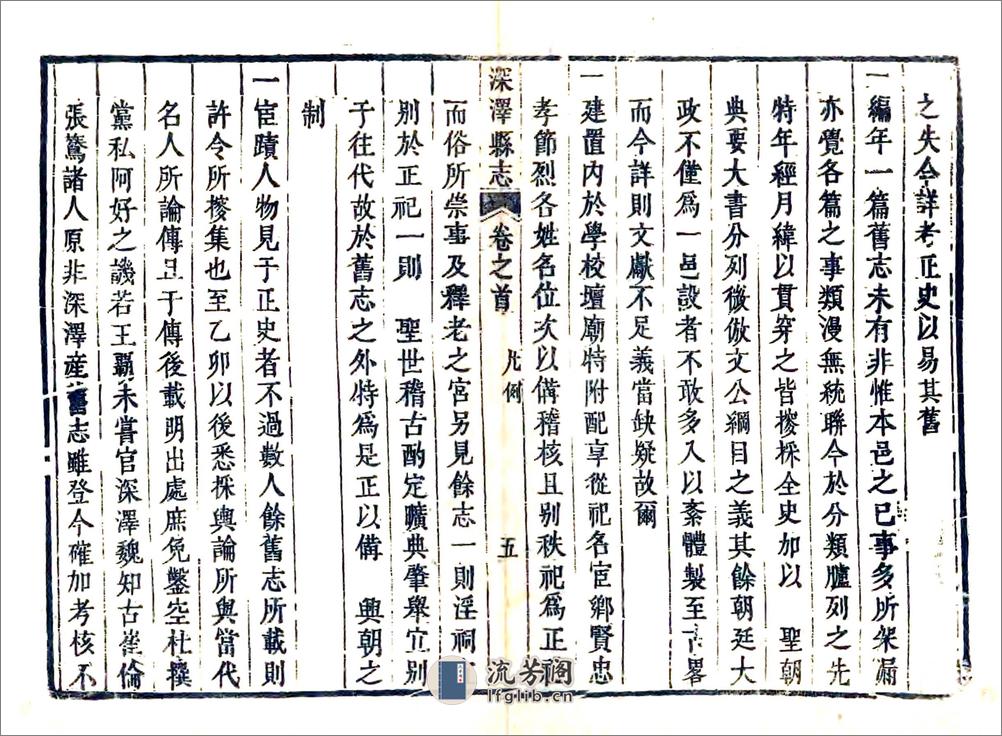 之失今詳考正史以易其舊
一編年一篇舊志未有非惟本邑之已事多所架漏
亦覺各篇之事類漫無統聯今於分類臚列之先
特年經月緯以貫穿之皆摉採全史加以 聖朝
典要大書分列微倣文公綱目之義其餘朝廷大
政不僅爲一邑設者不敢多入以紊體製至古畧
而今詳則文獻不足義當缺疑故爾
一建置內於學校壇廟特附配享從祀名宦鄉賢忠
孝節烈各姓名位次以備稽核且别秩祀爲正
深澤縣志 卷之首 凡例 五
而俗所崇事及釋老之宮另見餘志一則淫祠
别於正祀一則 聖世稽古酌定曠典肇舉宜别
于往代故於舊志之外特爲是正以備 興朝之
制
一宦蹟人物見于正史者不過數人餘舊志所載則
許令所摉集也至乙卯以後悉採輿論所與當代
名人所論傳且于傳後載明出處庶免鑿空杜撰
黨私阿好之譏若王覇未嘗官深澤魏知古崔倫
張鷟諸人原非深澤産舊志雖登今確加考核不
流芳阁
lfglib.cn